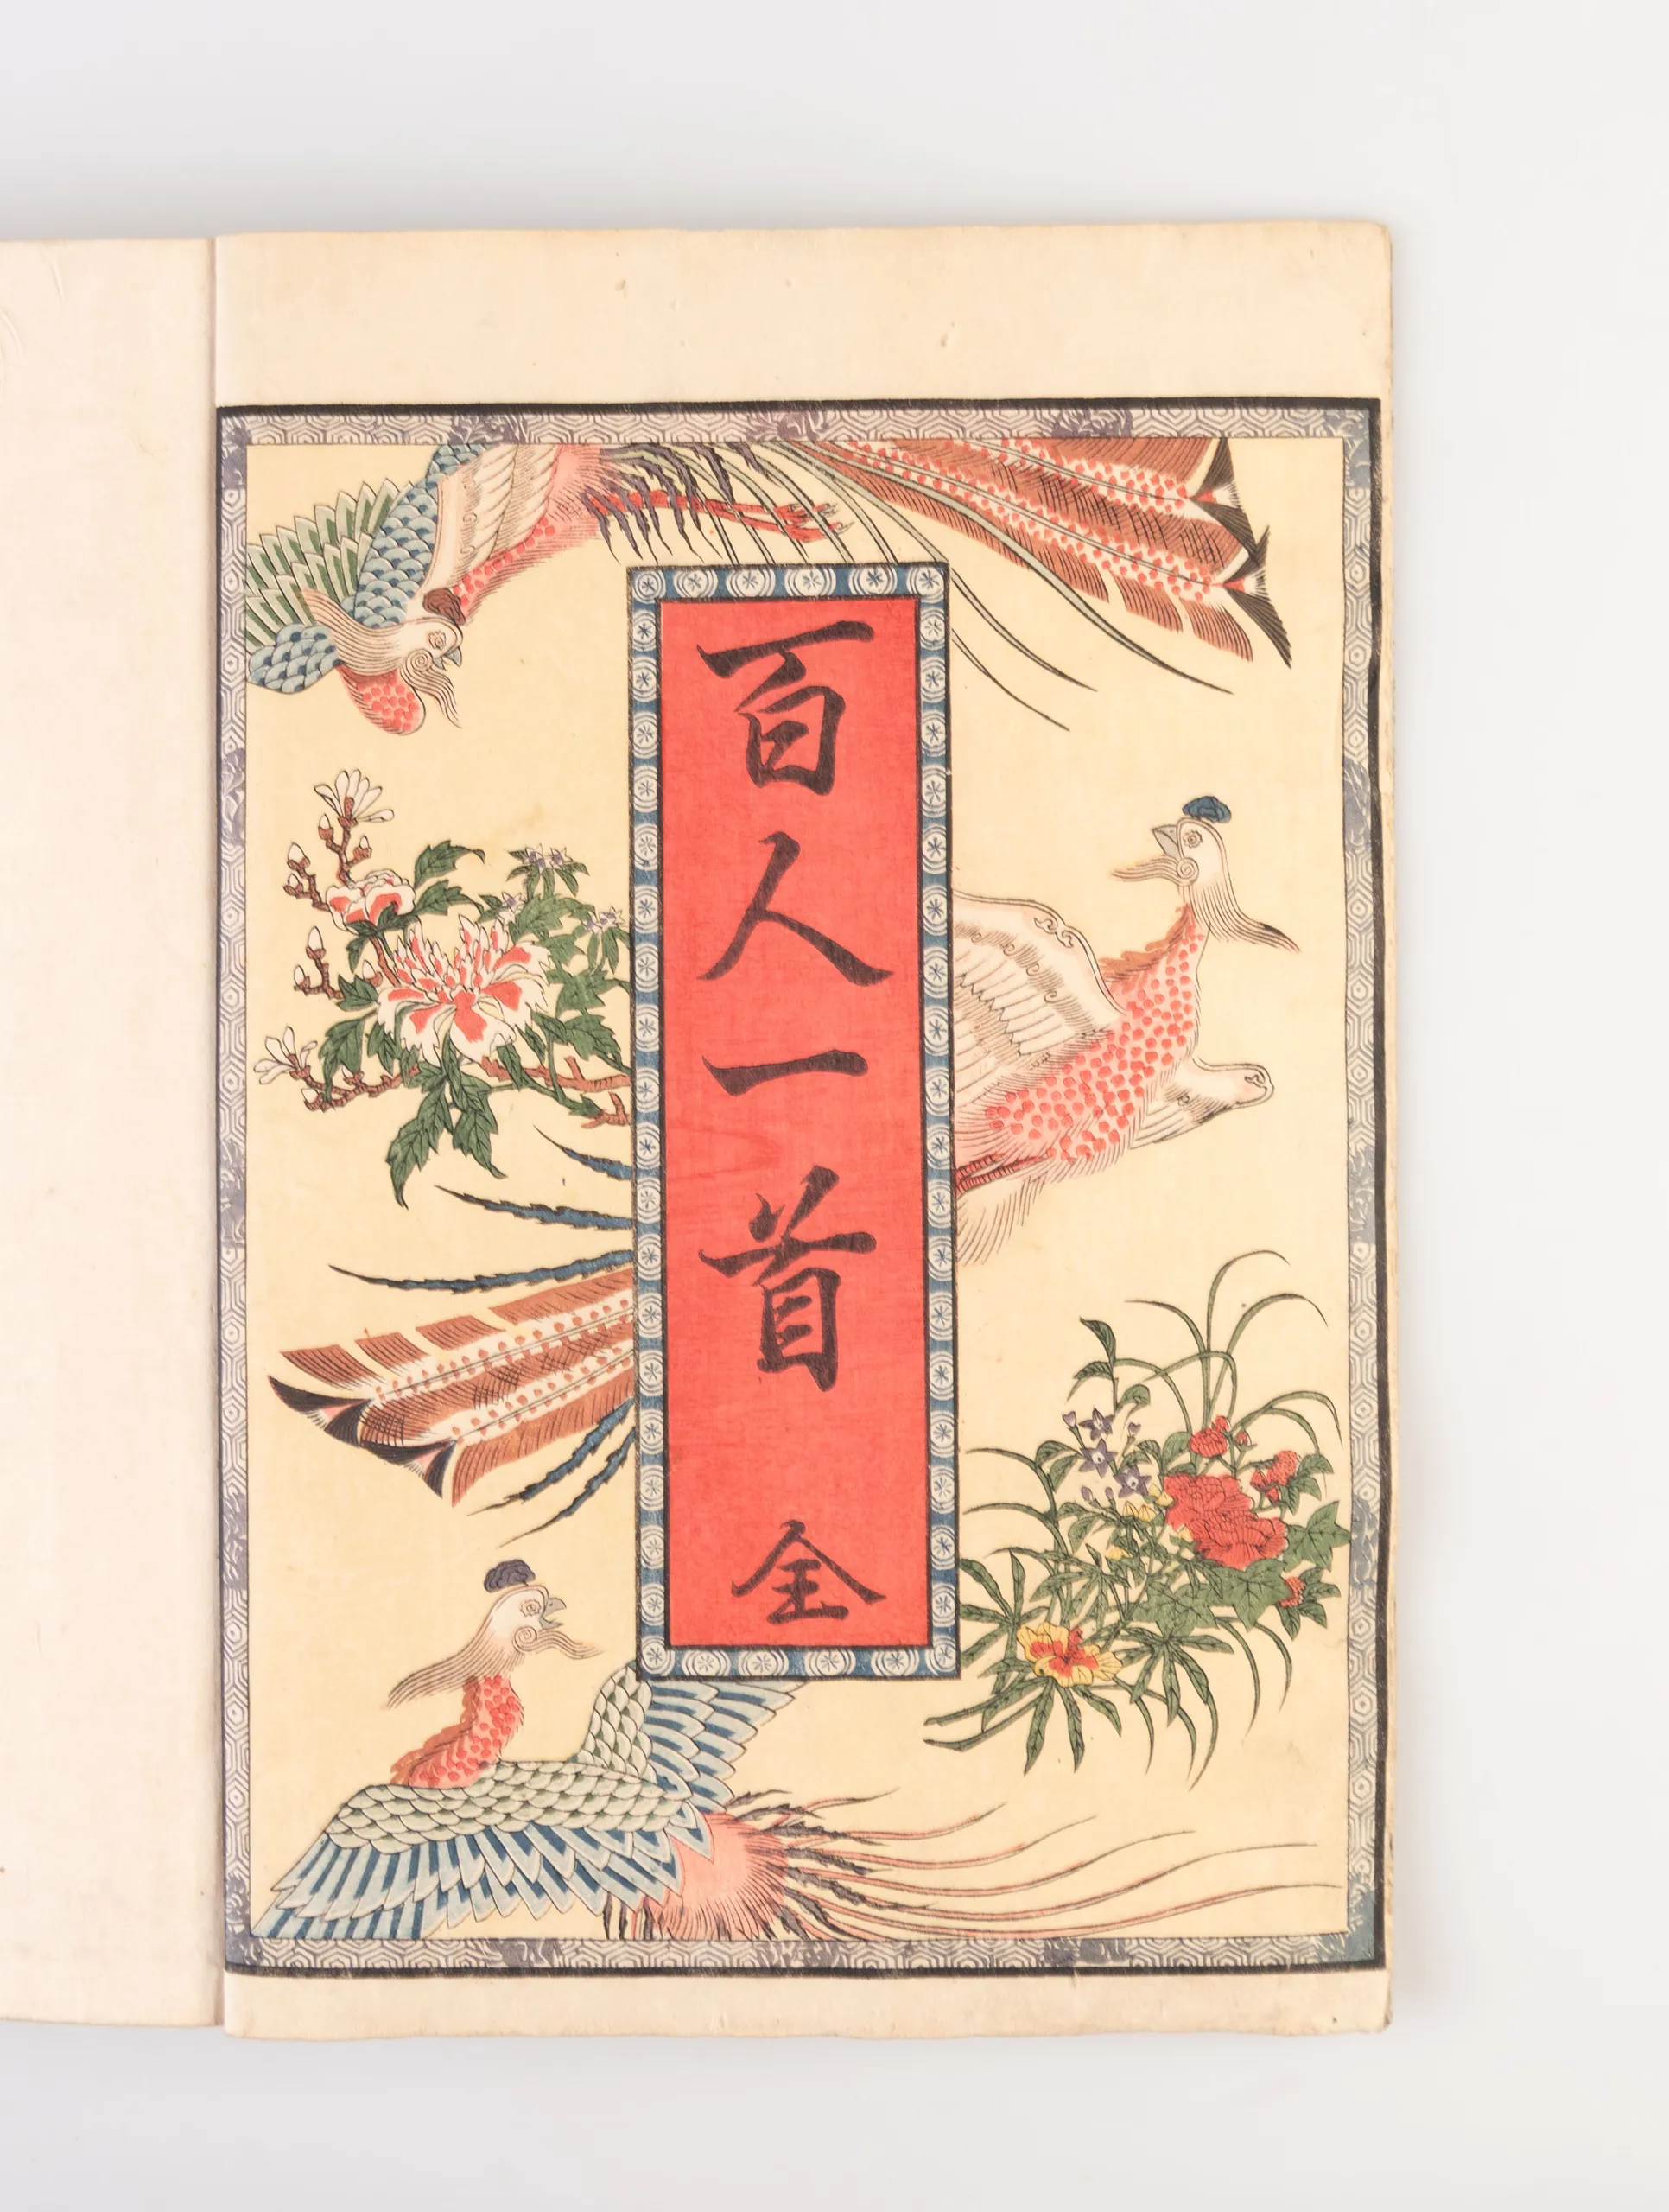 百人一首 全